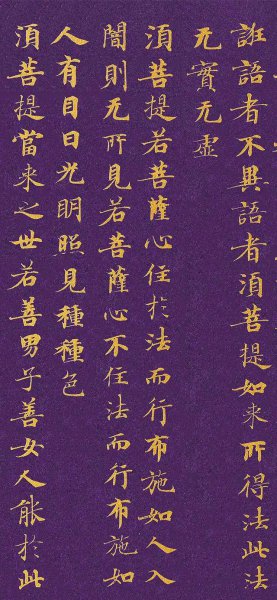 誑語者不異語者湏菩提如来所得法此法
无實无虛
湏菩提若菩薩心住於法而行布施如人入
闇則无所見若菩薩心不住法而行布施如
人有目日光眀照見種種色
湏菩提當来之世若善男子善女人能於此